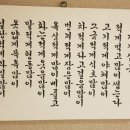 적게먹고많이씹는다
고기적게야채많이
소금적게식초많이
적게걸음많이
적게많이
욕심적게많이베풀고
말적게행동많이
옷얇게목욕많이
설탕적게과일많이